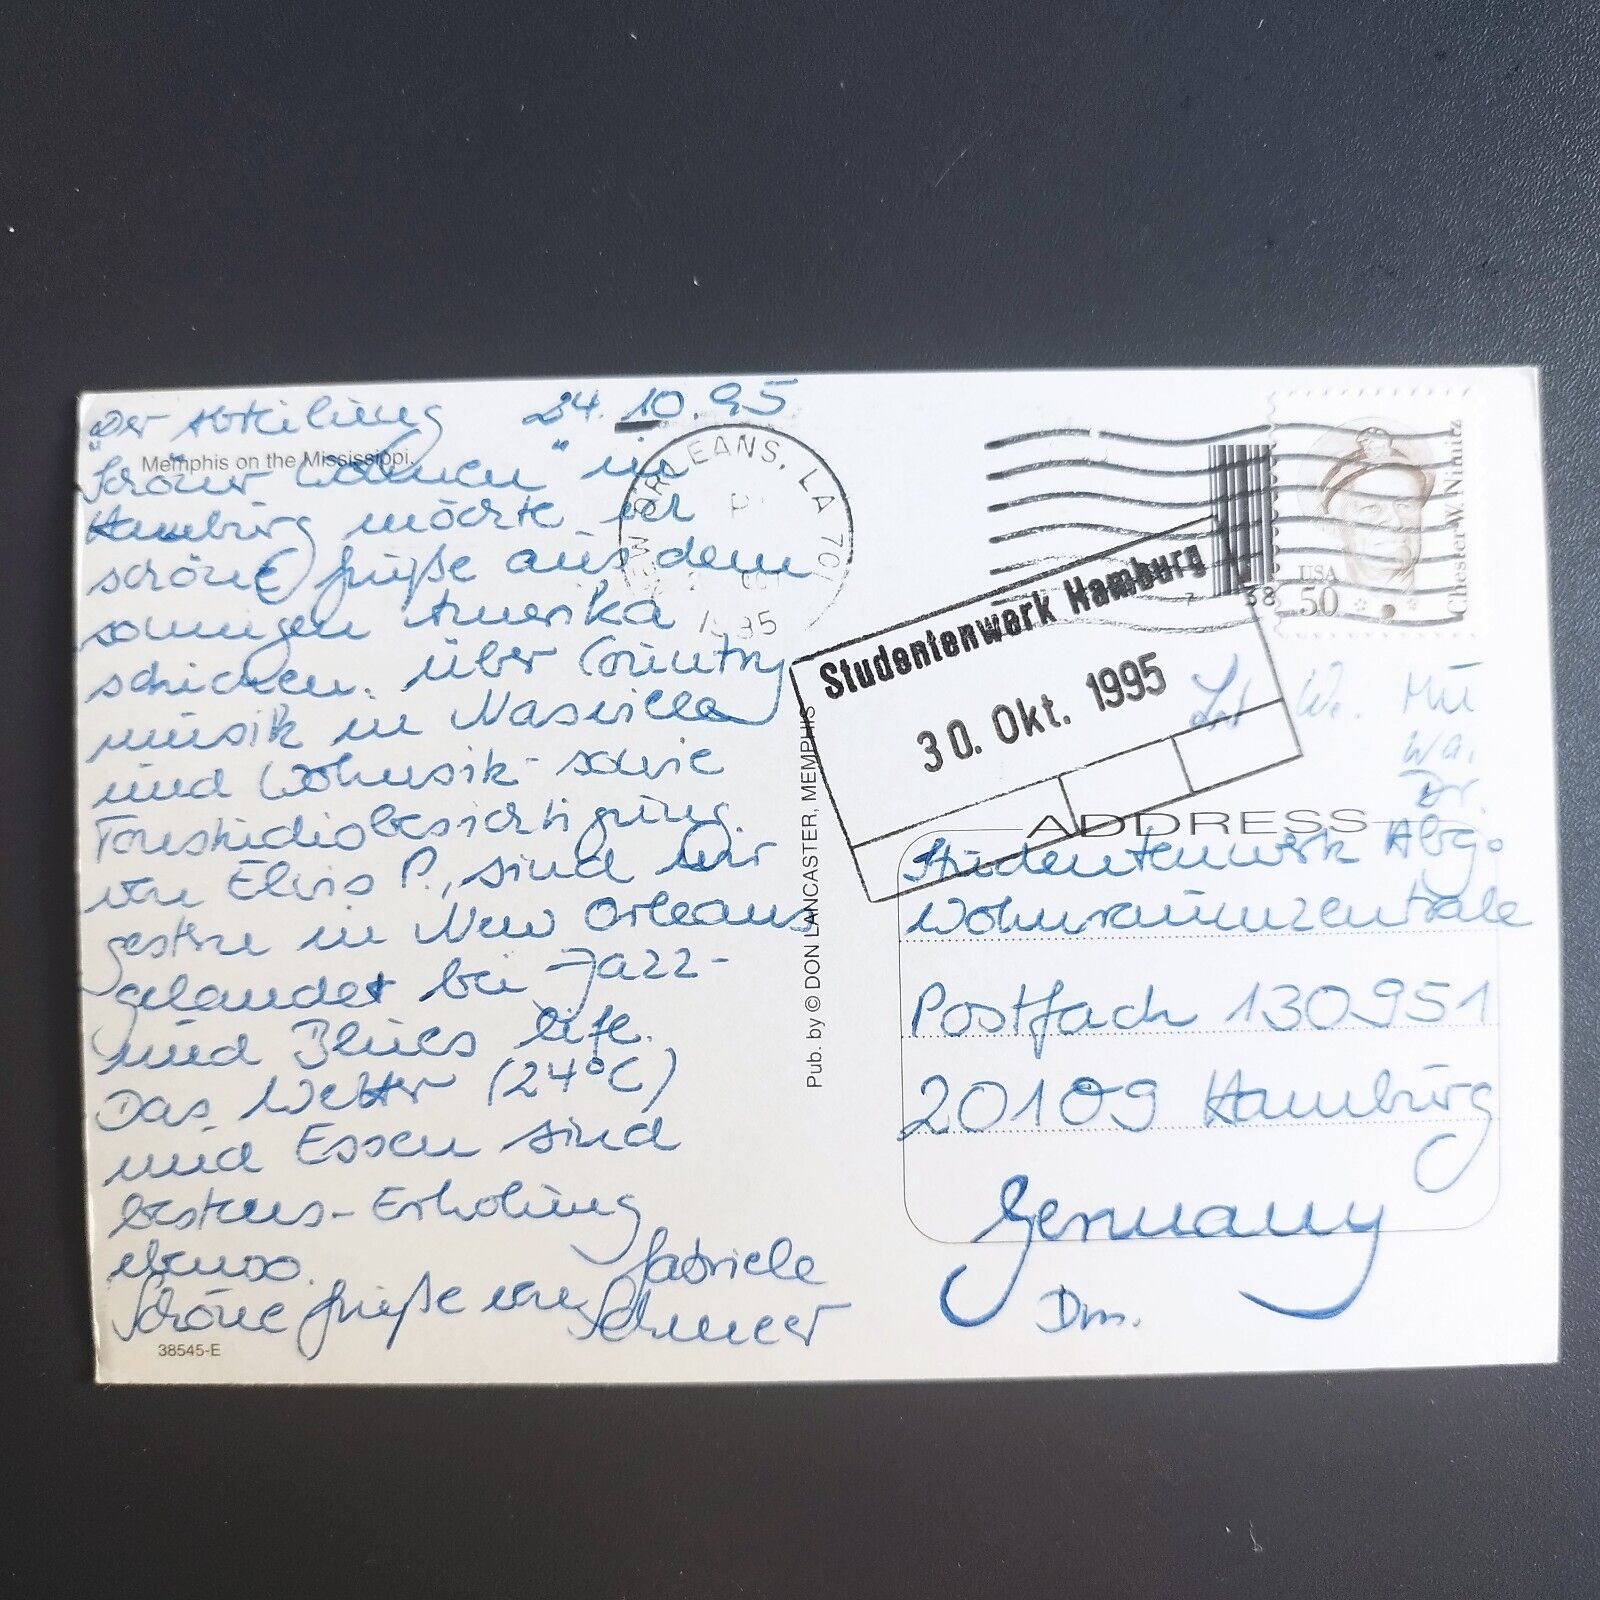 Der Abteilung 24.10.95
Memphis on the Mississippi.
"Schöner Wohnen" in
Hamburg möchte ich
schöne Grüße aus dem
sonnigen Amerika
schicken. über Country
musik in Nasville
und Wohnsik- sowie
Tonstudiobesichtigung
von Elvis P., sind wir
gestern in New Orleans
gelandet bei Jazz-
und Blues life.
Das Wetter (24°C)
und Essen sind
bestens - Erholung
ebenso.
Schöne Grüße von Gabriele
Schmeer
38545-E
Pub. by © DON LANCASTER, MEMPHIS
NEW ORLEANS, LA 701
1995
Studentenwerk Hamburg
30. Okt. 1995
38
USA
50
Chester W. Nimitz
We. Mü
Wa.
Dr.
ADDRESS
Studentenwerk Abtg.
Wohnraumzentrale
Postfach 130951
20109 Hamburg
Germany